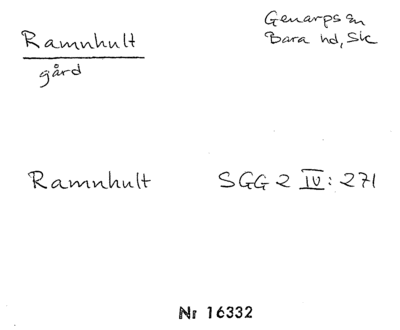 Ramnhult
gård
Genarps sn
Bara hd, Sk
Ramnhult SGG 2 IV: 271
Nr 16332